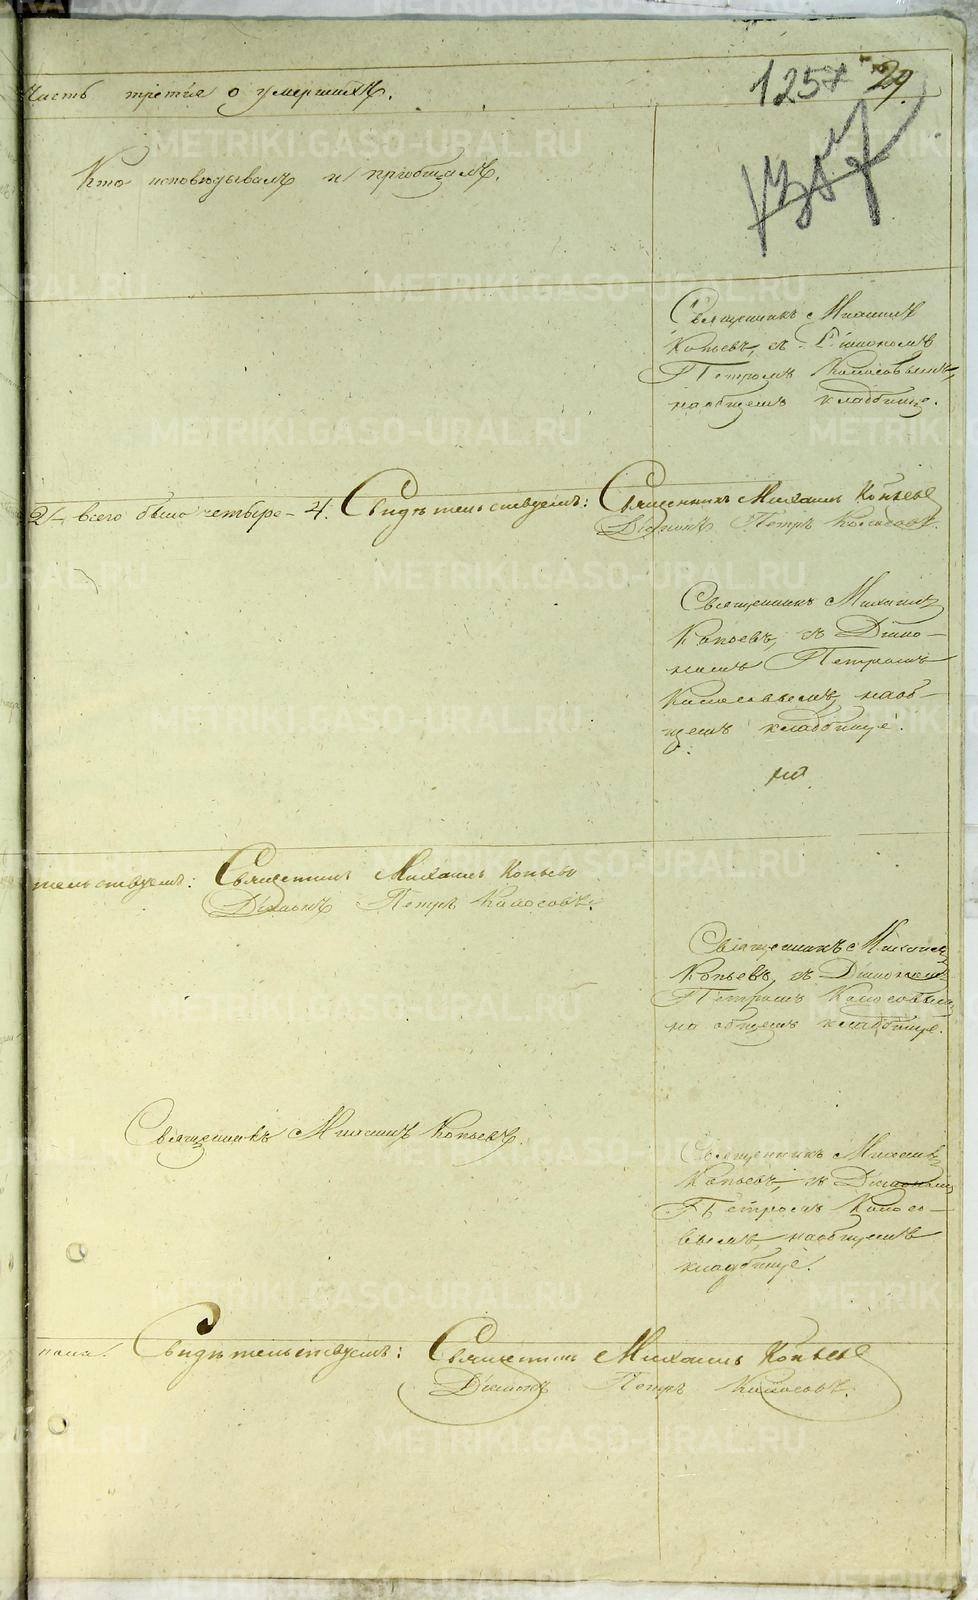 Часть третія о умершихъ.
1257 29.
Кто исповѣдывалъ и пріобщалъ.
Священникъ Михаилъ
Копьевъ, съ Діякономъ
Петромъ Колосовымъ,
на общемъ кладбище.
2/ всего было четыре - 4. Свидѣтельствуемъ: Священникъ Михаилъ Копьевъ
Діяконъ Петръ Колосовъ.
Священникъ Михаилъ
Копьевъ, съ Діяко-
номъ Петромъ
Колосовымъ, на об-
щемъ кладбище.
тельствуемъ: Священникъ Михаилъ Копьевъ
Діяконъ Петръ Колосовъ.
Священникъ Михаилъ
Копьевъ, съ Діякономъ
Петромъ Колосовымъ
на общемъ кладбище.
Священникъ Михаилъ Копьевъ.
Священникъ Михаилъ
Копьевъ, съ Діякономъ
Петромъ Колосо-
вымъ, на общемъ
кладбище.
Свидѣтельствуемъ: Священникъ Михаилъ Копьевъ
Діяконъ Петръ Колосовъ.
METRIKI.GASO-URAL.RU